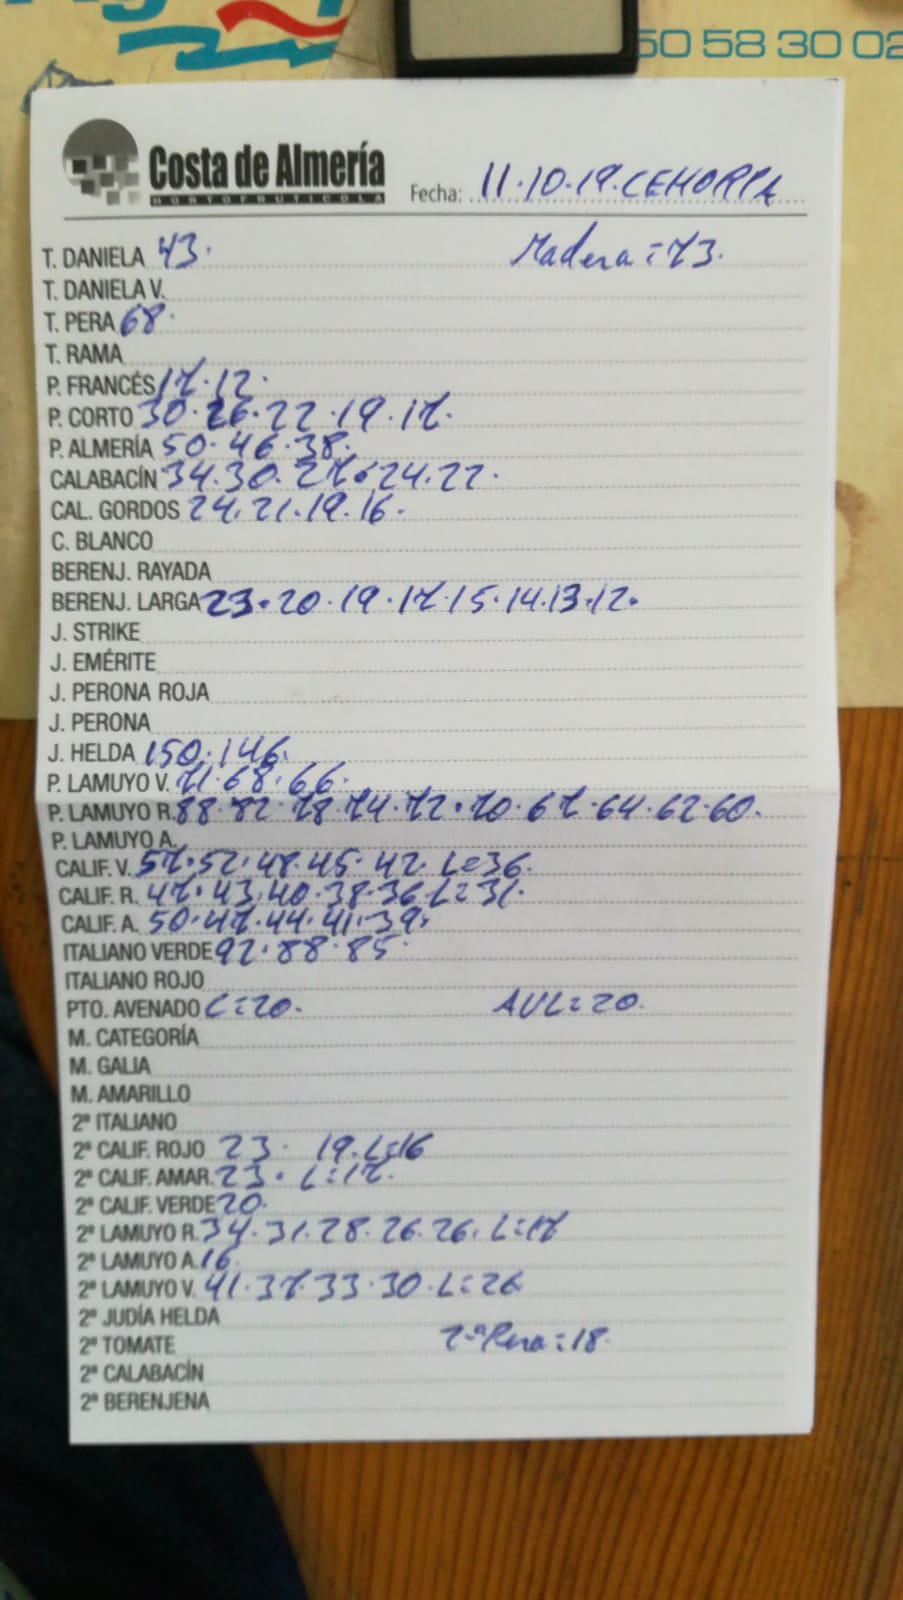 50 58 30 02
Costa de Almería
HORTOFRUTÍCOLA
Fecha: 11.10.19. CEHORPA
T. DANIELA 43. Madera=73.
T. DANIELA V.
T. PERA 68.
T. RAMA
P. FRANCÉS 17.12.
P. CORTO 30.26.22.19.17.
P. ALMERÍA 50.46.38.
CALABACÍN 34.30.27.24.22.
CAL. GORDOS 24.21.19.16.
C. BLANCO
BERENJ. RAYADA
BERENJ. LARGA 23.20.19.17.15.14.13.12.
J. STRIKE
J. EMÉRITE
J. PERONA ROJA
J. PERONA
J. HELDA 150.146.
P. LAMUYO V. 71.68.66.
P. LAMUYO R. 88.82.78.74.72.70.67.64.62.60.
P. LAMUYO A.
CALIF. V. 57.52.48.45.42. L=36.
CALIF. R. 47.43.40.38.36. L=31.
CALIF. A. 50.47.44.41.39.
ITALIANO VERDE 92.88.85.
ITALIANO ROJO
PTO. AVENADO C=20. AVL=20.
M. CATEGORÍA
M. GALIA
M. AMARILLO
2ª ITALIANO
2ª CALIF. ROJO 23. 19. L=16
2ª CALIF. AMAR. 23. L=17.
2ª CALIF. VERDE 20.
2ª LAMUYO R. 34.31.28.26.26. L=17
2ª LAMUYO A. 16.
2ª LAMUYO V. 41.37.33.30. L=26
2ª JUDÍA HELDA
2ª TOMATE 2ª Pera=18.
2ª CALABACÍN
2ª BERENJENA